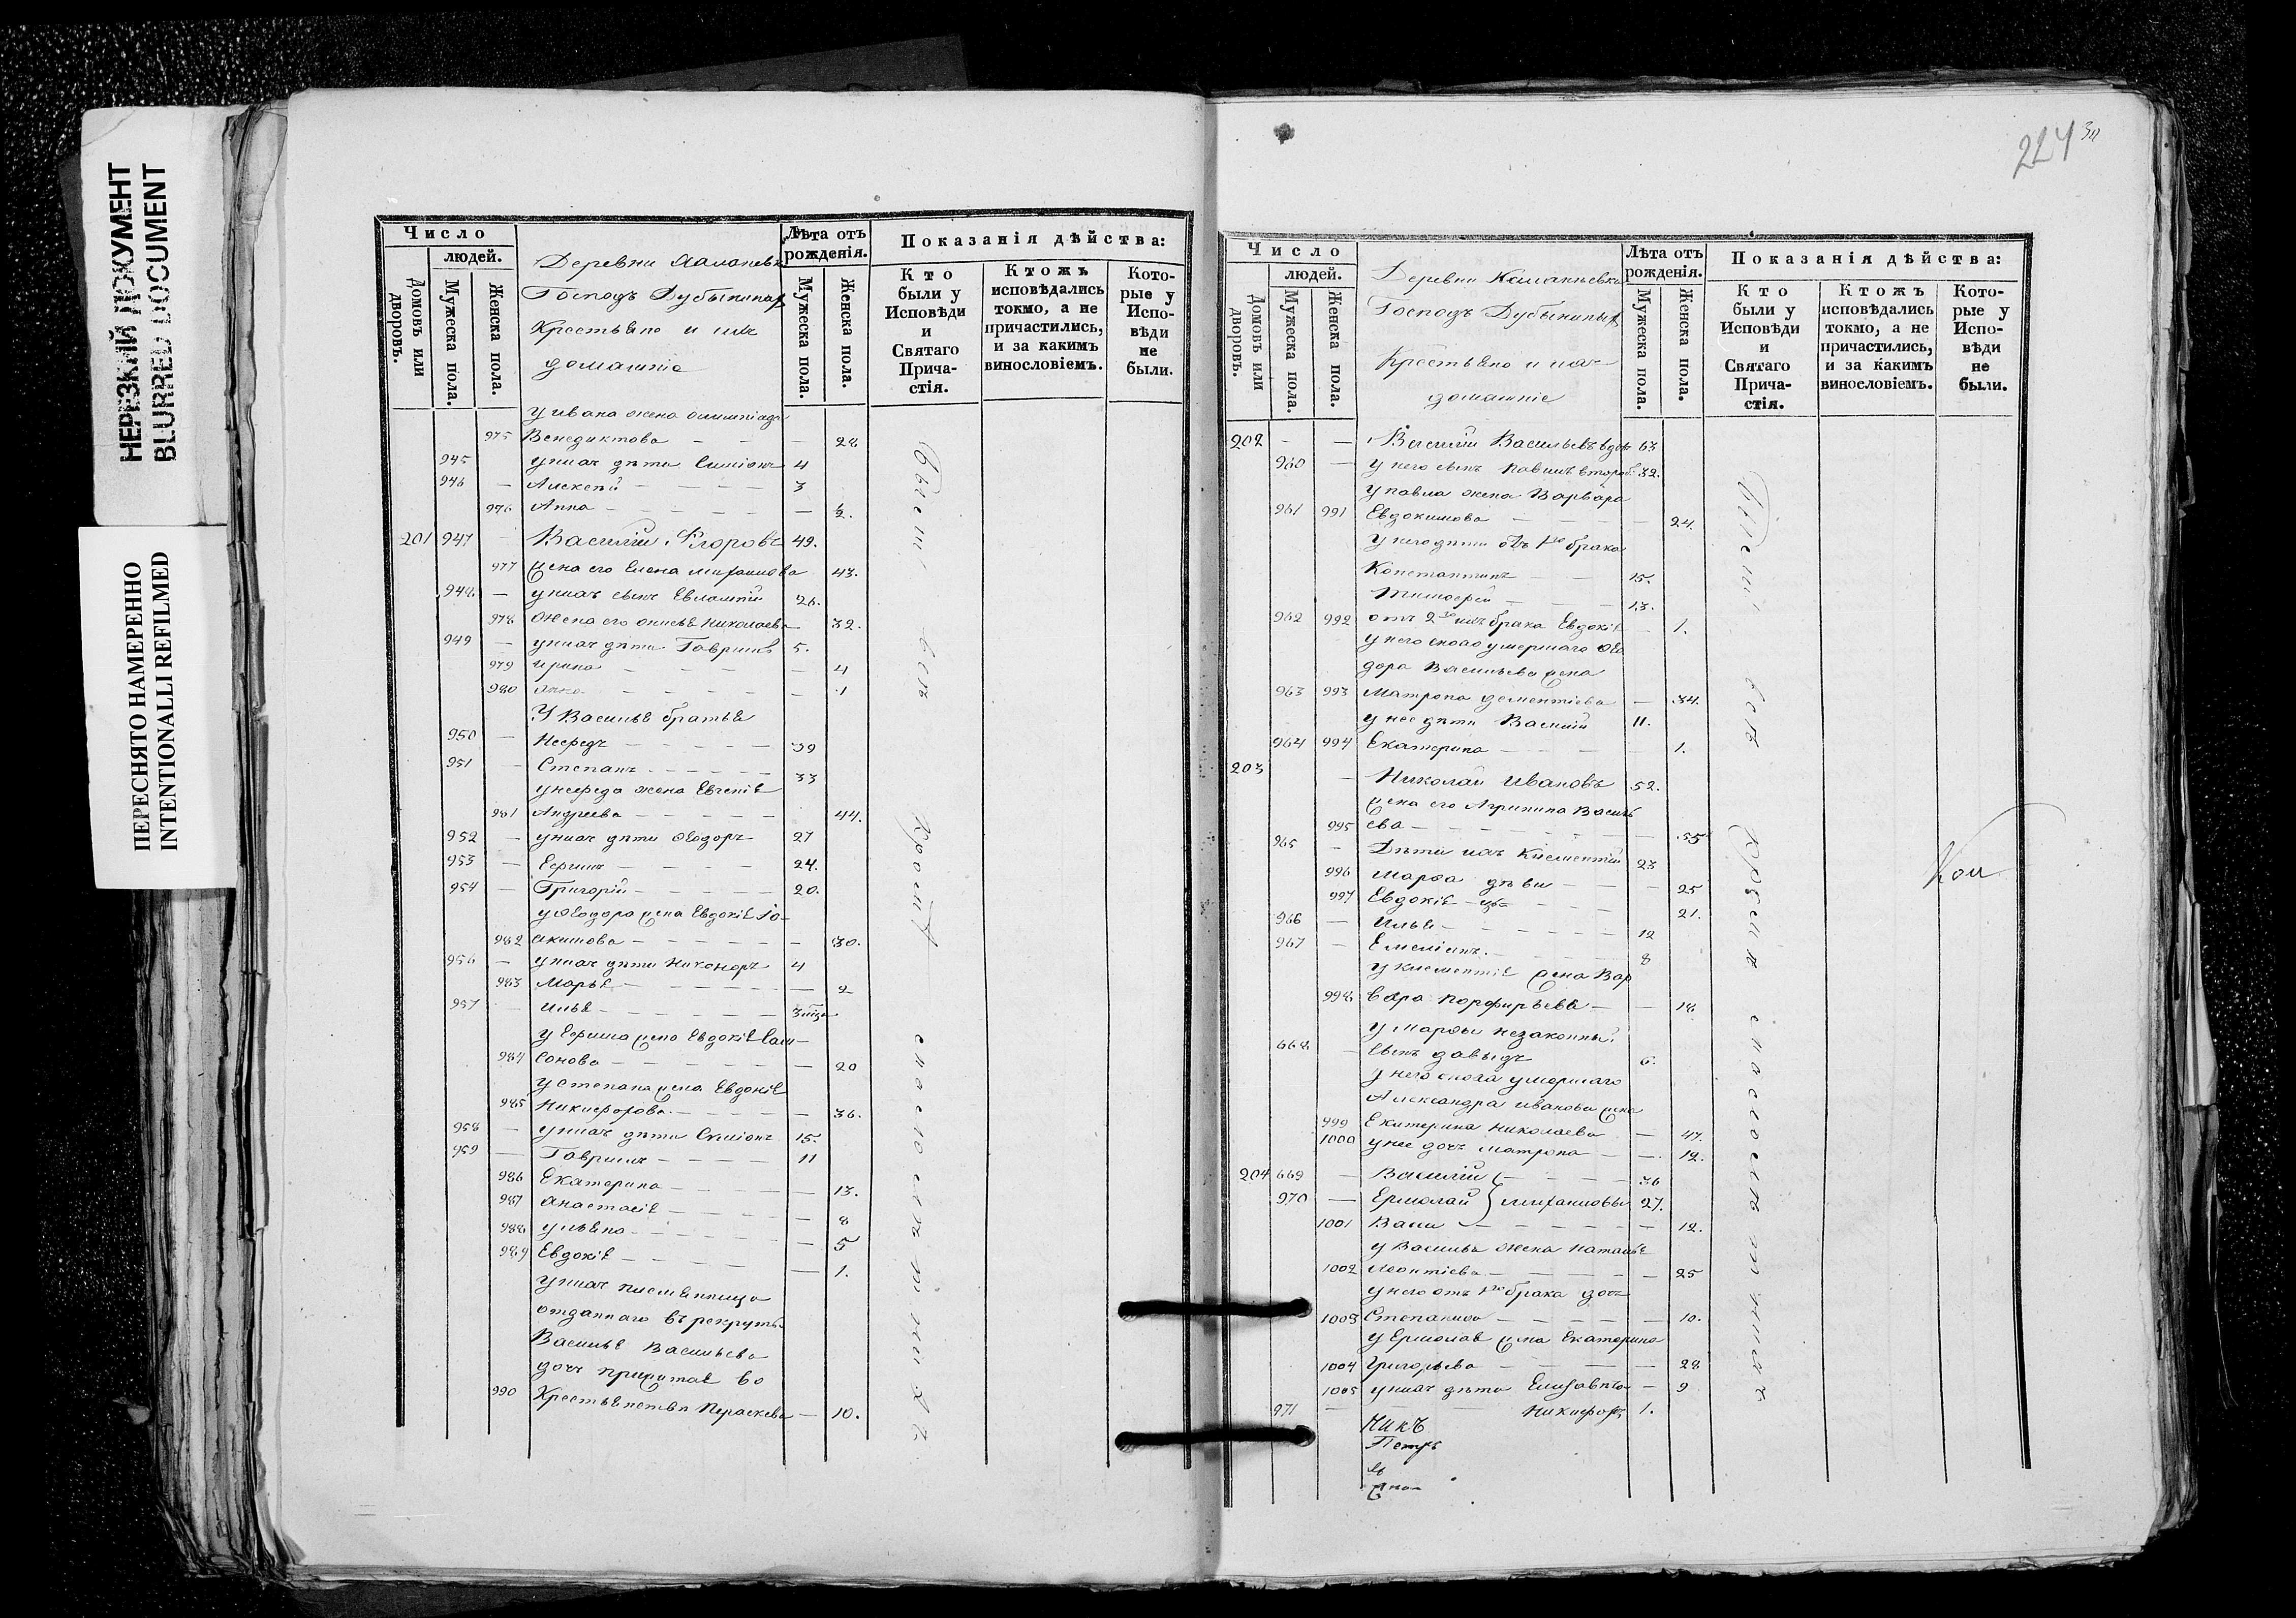 НЕРЕЗКИЙ ДОКУМЕНТ
BLURRED DOCUMENT
ПЕРЕСНЯТО НАМЕРЕННО
INTENTIONALLI REFILMED
Число
людей.
Домовъ или дворовъ.
Мужеска пола.
Женска пола.
Деревни
Господъ Дубыниныхъ
Крестьяно и ихъ
домашніе
Лѣта отъ рожденія.
Мужеска пола.
Женска пола.
Показанія дѣйства:
Кто были у Исповѣди и Святаго Прича-стія.
Ктожъ исповѣдались токмо, а не причастились, и за какимъ винословіемъ.
Кото-рые у Испо-вѣди не были.
у ивана жена олимпіада
975 Венедиктова — — — 28
945 у нихъ дѣти Симіонъ 4
946 — Алексѣй — — — 3
976 Анна — — — 2.
201 947 Василій Егоровъ 49.
977 жена его Елена михаилова 43.
948. — у нихъ сынъ Евлампій 26.
978 жена его анисья николаева 32.
949 — у нихъ дѣти Гавріилъ 5.
979 ирина — — — 4
980 анна — — — 1
У Василья братья
950 — Несредъ — — — 39
951 — Степанъ — — — 33
у жена Евгенія
981 Андреева — — — 44.
952 — у нихъ дѣти Ѳеодоръ 27
953 — Ефимъ — — — 24.
954 — Григорій — — — 20.
у Ѳеодора жена Евдокія Іо-
982 акимова — — — 30.
956 — у нихъ дѣти Никоноръ 4
983 Марья — — — 2
957 илья — — —
у Ефима жена Евдокія Сам-
984 сонова — — — 20
у Степана жена Евдокія
985 Никифорова — — — 36.
958 — у нихъ дѣти Симіонъ 15.
959 — Гавріилъ — — — 11
986 Екатерина — — — 13.
987 анастасія — — — 8
988 ульяна — — — 5
989 Евдокія — — — 1.
у нихъ племянница
отданнаго въ рекруты
Василья Васильева
дочь во
990 Параскева — 10.
Были
всѣ
224
Число
людей.
Домовъ или дворовъ.
Мужеска пола.
Женска пола.
Деревни
Господъ Дубыниныхъ
Крестьяно и ихъ
домашніе
Лѣта отъ рожденія.
Мужеска пола.
Женска пола.
Показанія дѣйства:
Кто были у Исповѣди и Святаго Прича-стія.
Ктожъ исповѣдались токмо, а не причастились, и за какимъ винословіемъ.
Кото-рые у Испо-вѣди не были.
202 — — Василій Васильевъ вдов 63
960 — у него сынъ павилъ второб. 32.
у павла жена Варвара
961 991 Евдокимова — — — 24.
у него дѣти отъ 1го брака
Константинъ — — 15.
Тимофей — — — 13.
962 992 отъ 2го ихъ брака Евдокія — 1.
у него сноха умершаго Ѳео
дора Васильева жена
963 993 Матрона дементіева — 34.
у нее дѣти Василій 11.
964 994 Екатерина — — — 1.
203 — Николай Ивановъ 52.
жена его Агрипина Василь
995 ева — — — 55
965 — Дѣти ихъ Клементій 23
996 Марѳа дѣви — — 25
997 Евдокія — — — 21.
966 — Илья — — — 12
967 — Емеліанъ. — — — 8
у клементія жена Вар
998 вара порфирьева — — 18
у Марѳы незаконный
668. — сынъ давыдъ 6.
у него сноха умершаго
Александра иванова жена
999 Екатерина николаева — 47.
1000 у нее дочь матрона — — 12.
204 669 — Василій — — — 36
970 — Ермолай } михаиловы 27.
1001 Васи — — — 12.
у Василья жена наталья
1002 леонтіева — — — 25
у него отъ 1го брака дочь
1003 Степанида — — — 10.
у Ермолая жена екатерина
1004 Григорьева — — — 28
1005 у нихъ дѣти Елизавѣта — 9
971 — — Никифоръ 1.
Никъ
Петръ
жена
Были
всѣ